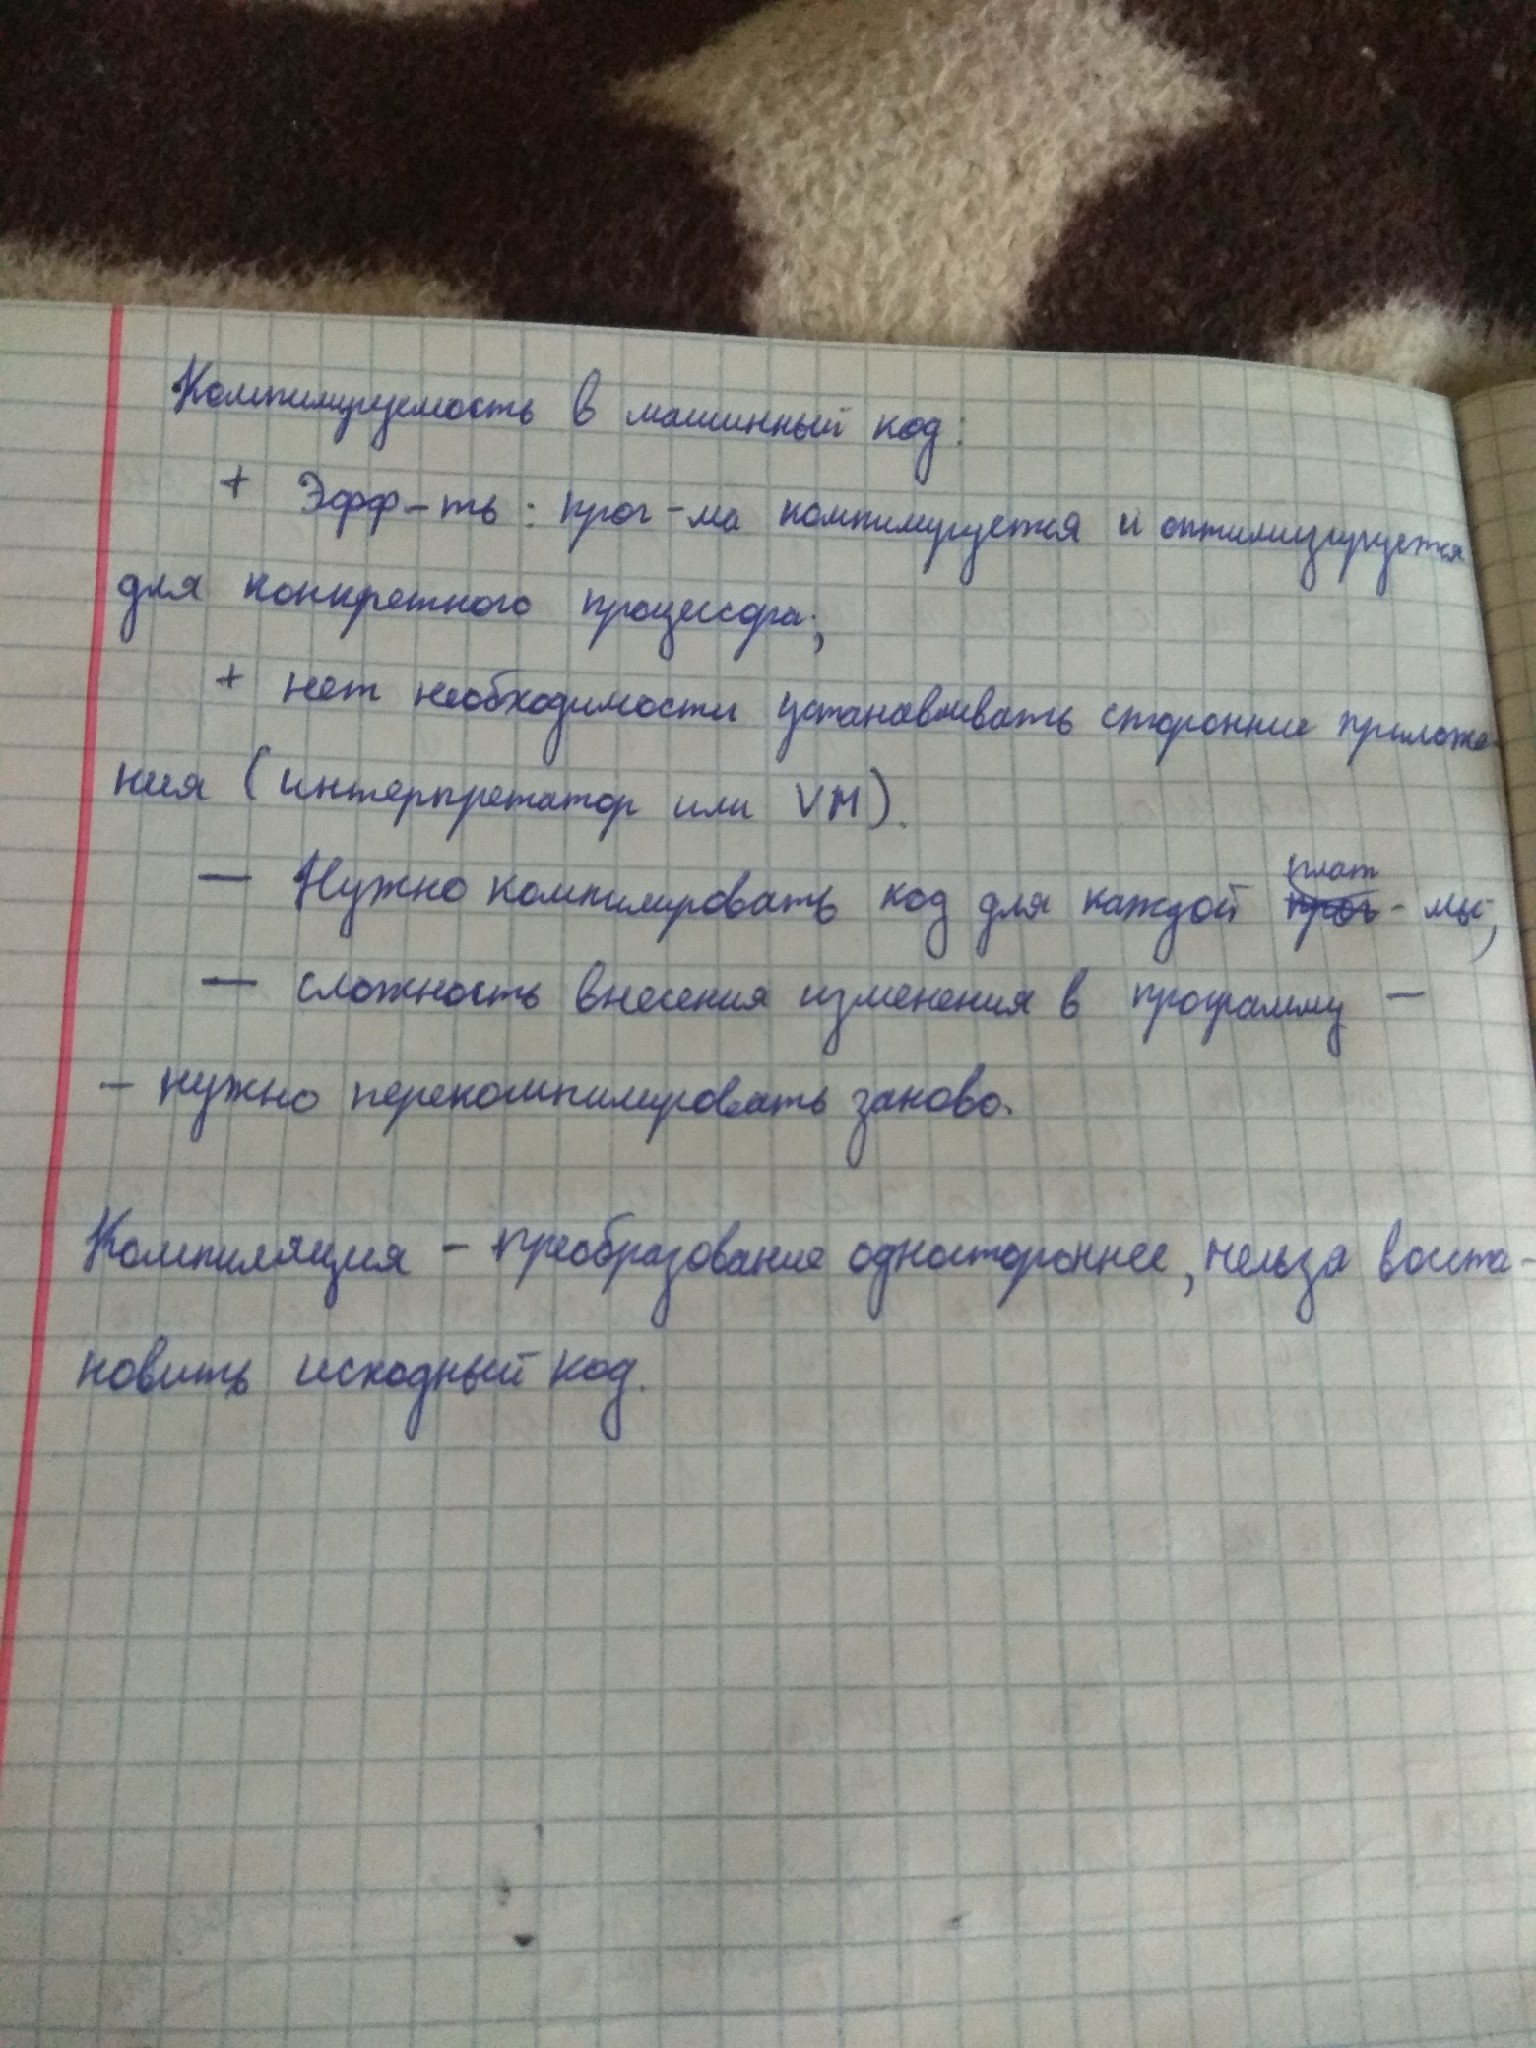 Компилируемость в машинный код:
+ Эфф-ть: прог-ма компилируется и оптимизируется
для конкретного процессора;
+ нет необходимости устанавливать сторонние приложе-
ния (интерпретатор или VM).
— Нужно компилировать код для каждой плат
прог - мы;
— сложность внесения изменения в программу —
— нужно перекомпилировать заново.
Компиляция – преобразование одностороннее, нельза воста-
новить исходный код.